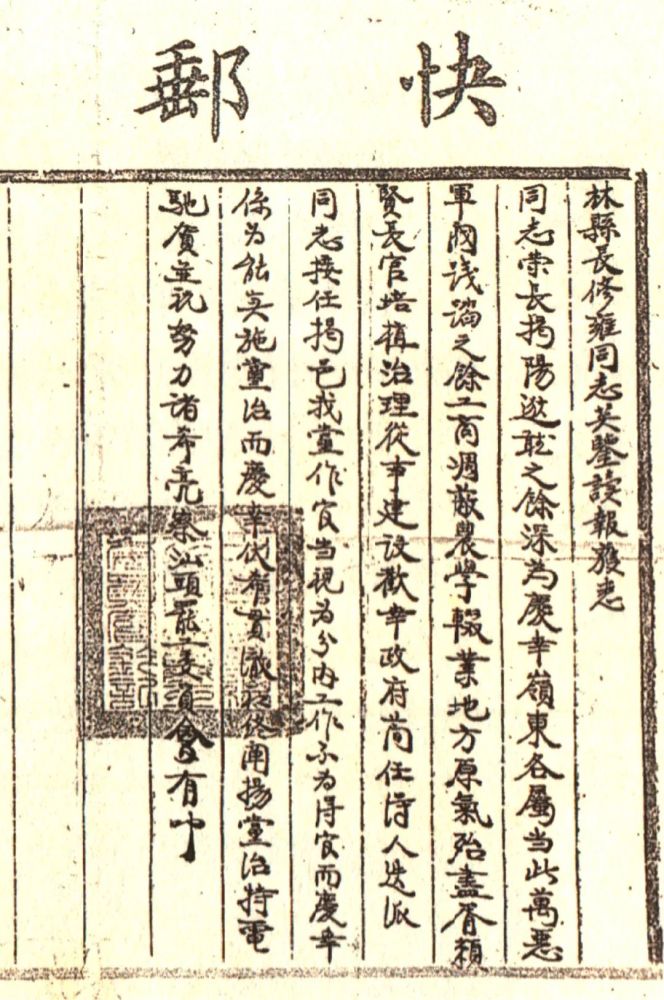 快郵
林縣長修雍同志英鑒讀報獲悉
同志榮長揭陽逖聽之餘深為慶幸嶺東各屬当此萬惡
軍閥踐踏之餘工商凋蔽農學輟業地方原氣殆盡胥賴
賢長官培植治理從事建設歡幸政府簡任得人迭派
同志接任揭邑我黨作官当視为分内工作不为得官而慶幸
係为能实施黨治而慶幸代有貫澈
闡揚黨治特電
馳賀並祝努力诸希亮察汕頭罷工委員會有叩